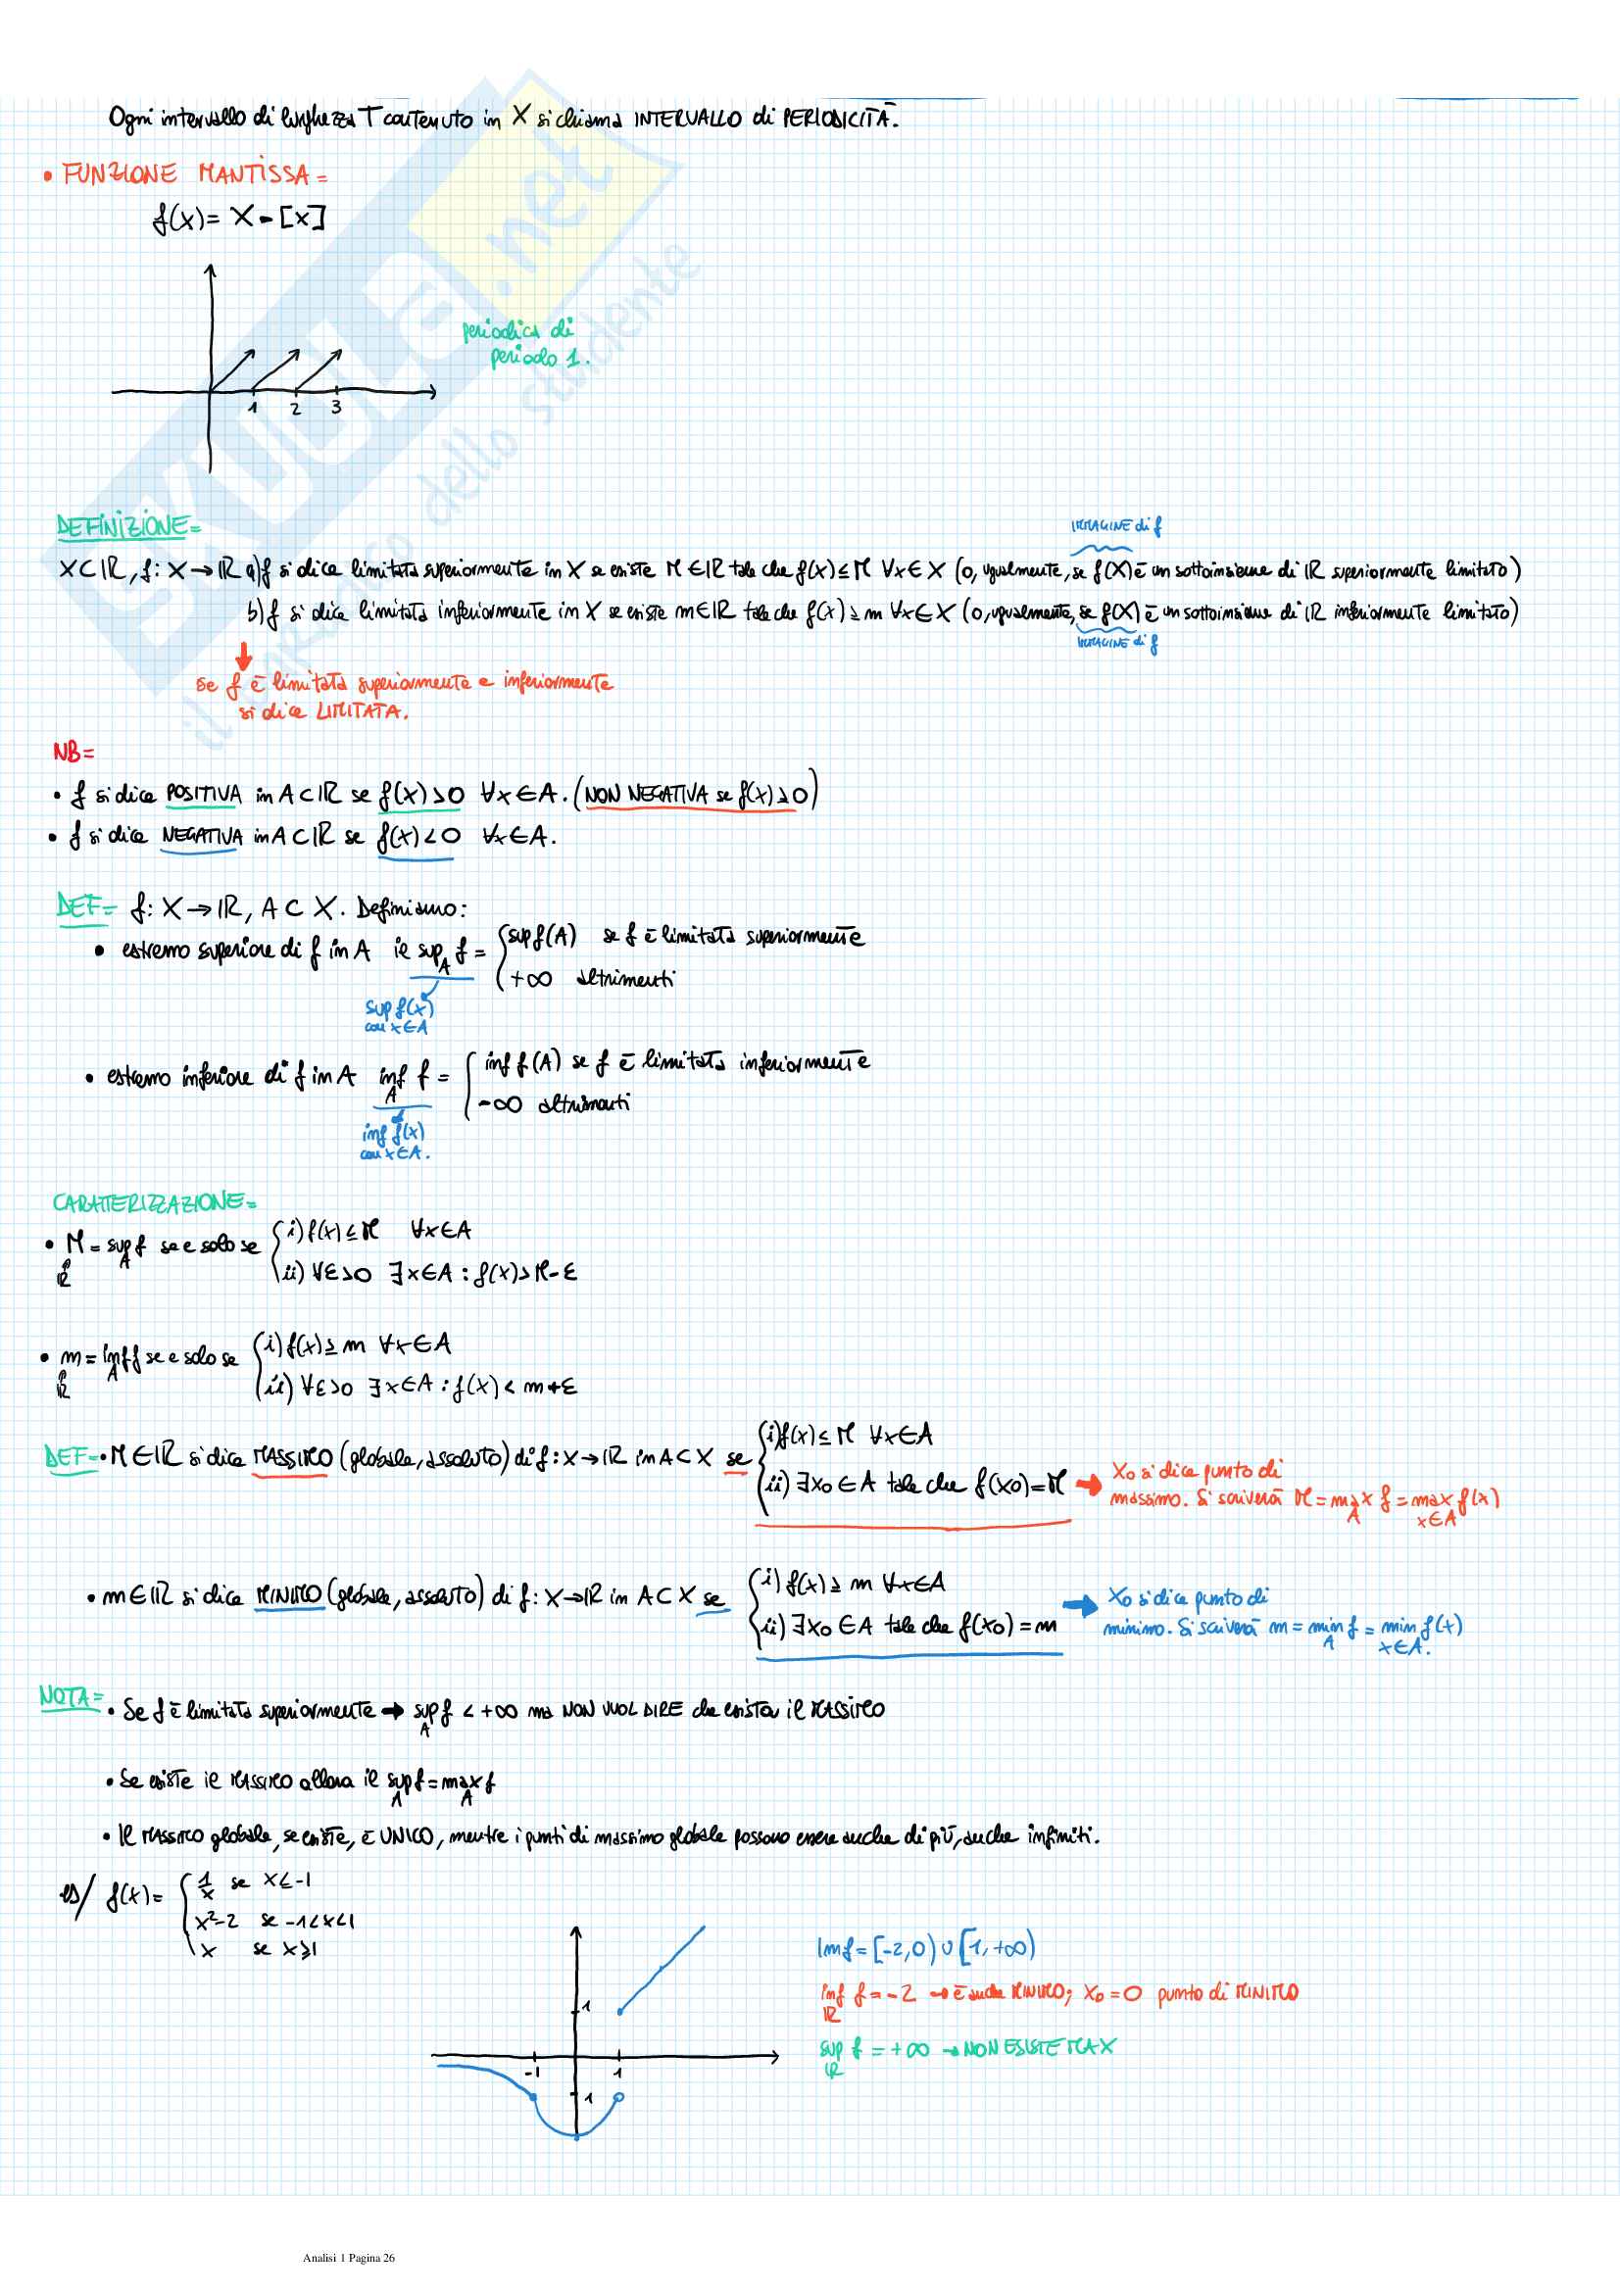 Ogni intervallo di lunghezza T contenuto in X si chiama INTERVALLO di PERIODICITÀ.
• FUNZIONE MANTISSA=
f(x)= X-[x]
periodica di
periodo 1.
1 2 3
DEFINIZIONE=
IMMAGINE di f
X⊂ℝ, f: X→ℝ a) f si dice limitata superiormente in X se esiste M∈ℝ tale che f(x)≤M ∀x∈X (o, ugualmente, se f(X) è un sottoinsieme di ℝ superiormente limitato)
b) f si dice limitata inferiormente in X se esiste m∈ℝ tale che f(x)≥m ∀x∈X (o, ugualmente, se f(X) è un sottoinsieme di ℝ inferiormente limitato)
IMMAGINE di f
se f è limitata superiormente e inferiormente
si dice LIMITATA.
NB=
• f si dice POSITIVA in A⊂ℝ se f(x)>0 ∀x∈A. (NON NEGATIVA se f(x)≥0)
• f si dice NEGATIVA in A⊂ℝ se f(x)<0 ∀x∈A.
DEF= f: X→ℝ, A⊂X. Definiamo:
• estremo superiore di f in A il sup_A f = { sup f(A) se f è limitata superiormente
+∞ altrimenti
sup f(x)
con x∈A
• estremo inferiore di f in A inf_A f = { inf f(A) se f è limitata inferiormente
-∞ altrimenti
inf f(x)
con x∈A.
CARATTERIZZAZIONE=
• M = sup_A f se e solo se { i) f(x)≤M ∀x∈A
∈ℝ
ii) ∀ε>0 ∃x∈A : f(x)>M-ε
• m = inf_A f se e solo se { i) f(x)≥m ∀x∈A
∈ℝ
ii) ∀ε>0 ∃x∈A : f(x)<m+ε
DEF= • M∈ℝ si dice MASSIMO (globale, assoluto) di f: X→ℝ in A⊂X se { i) f(x)≤M ∀x∈A
ii) ∃x₀∈A tale che f(x₀)=M → x₀ si dice punto di
massimo. Si scriverà M = max_A f = max_{x∈A} f(x)
• m∈ℝ si dice MINIMO (globale, assoluto) di f: X→ℝ in A⊂X se { i) f(x)≥m ∀x∈A
ii) ∃x₀∈A tale che f(x₀)=m → x₀ si dice punto di
minimo. Si scriverà m = min_A f = min_{x∈A.} f(x)
NOTA= • Se f è limitata superiormente → sup_A f < +∞ ma NON VUOL DIRE che esista il MASSIMO
• Se esiste il MASSIMO allora il sup_A f = max_A f
• Il MASSIMO globale, se esiste, è UNICO, mentre i punti di massimo globale possono essere anche di più, anche infiniti.
es/ f(x)= { 1/x se x≤-1
x²-2 se -1<x<1
x se x≥1
Im f = [-2,0) ∪ [1,+∞)
inf_ℝ f = -2 → è anche MINIMO; x₀=0 punto di MINIMO
sup_ℝ f = +∞ → NON ESISTE MAX
1
-1 1
1
SKUOLA.net
il portale dello studente
Analisi 1 Pagina 26